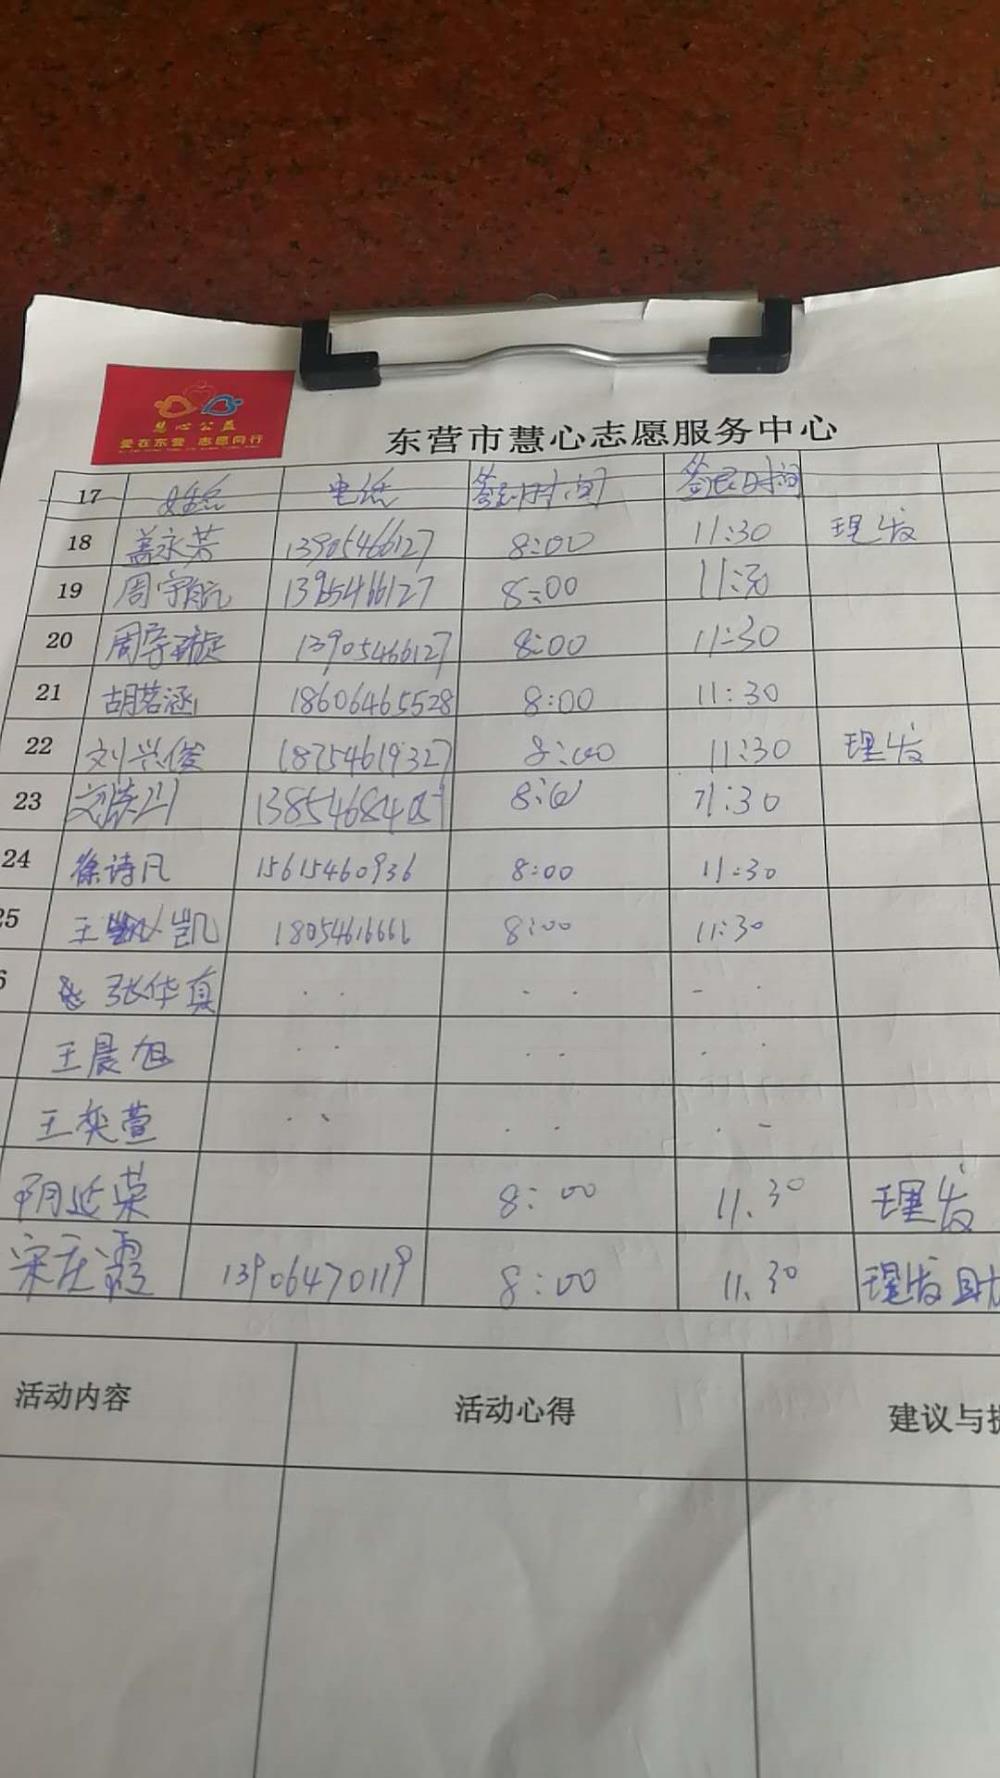 慧心公益
爱在东营 志愿同行
东营市慧心志愿服务中心
17 姓名 电话 签到时间 签退时间
18 盖永芳 13905466127 8:00 11:30 理发
19 周宇航 13905466127 8:00 11:30
20 周宇璇 13905466127 8:00 11:30
21 胡若涵 18606465528 8:00 11:30
22 刘兴俊 18754619327 8:00 11:30 理发
23 8:00 11:30
24 徐诗凡 15615460936 8:00 11:30
25 王凯 18054616661 8:00 11:30
6 张华真 · · · · - ·
王晨旭 · · · · · ·
王奕萱 · · · · · -
阴延荣 8:00 11.30 理发
宋在霞 13906470119 8:00 11.30 理发助
活动内容 活动心得 建议与